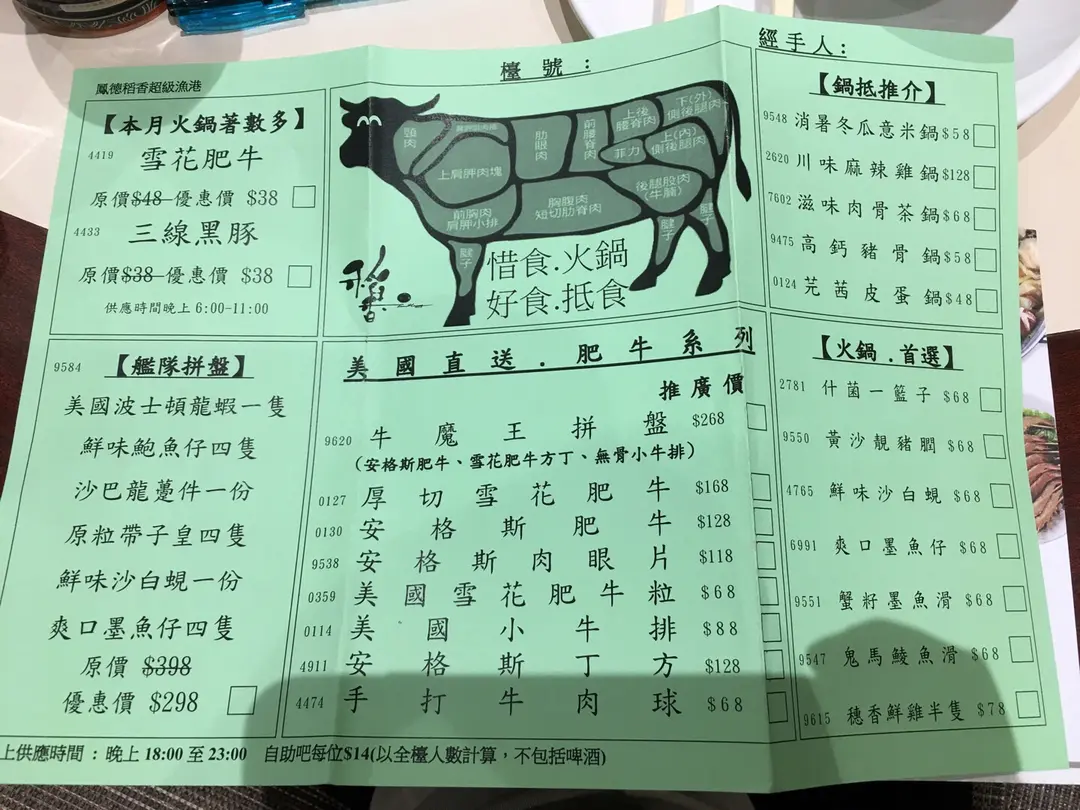 鳳德稻香超級漁港
檯號：
經手人：
【本月火鍋著數多】
4419 雪花肥牛
原價$48 優惠價 $38
4433 三線黑豚
原價$38 優惠價 $38
供應時間晚上6:00-11:00
頸肉
上肩胛肉塊
肋眼肉
前腰脊肉
上後腰脊肉
下(外)側後腿肉
菲力
上(內)側後腿肉
後腿股肉(牛腩)
前胸肉
肩胛小排
胸腹肉
短切肋脊肉
腱子
腱子
腱子
稻香
惜食.火鍋
好食.抵食
【鍋抵推介】
9548 消暑冬瓜意米鍋 $58
2620 川味麻辣雞鍋 $128
7602 滋味肉骨茶鍋 $68
9475 高鈣豬骨鍋 $58
0124 芫茜皮蛋鍋 $48
9584 【艦隊拼盤】
美國波士頓龍蝦一隻
鮮味鮑魚仔四隻
沙巴龍躉件一份
原粒帶子皇四隻
鮮味沙白蜆一份
爽口墨魚仔四隻
原價 $398
優惠價 $298
美國直送．肥牛系列
推廣價
9620 牛魔王拼盤 $268
(安格斯肥牛、雪花肥牛方丁、無骨小牛排)
0127 厚切雪花肥牛 $168
0130 安格斯肥牛 $128
9538 安格斯肉眼片 $118
0359 美國雪花肥牛粒 $68
0114 美國小牛排 $88
4911 安格斯丁方 $128
4474 手打牛肉球 $68
【火鍋．首選】
2781 什菌一籃子 $68
9550 黃沙靚豬膶 $68
4765 鮮味沙白蜆 $68
6991 爽口墨魚仔 $68
9551 蟹籽墨魚滑 $68
9547 鬼馬鯪魚滑 $68
9615 穗香鮮雞半隻 $78
上供應時間：晚上 18:00 至 23:00 自助吧每位$14(以全檯人數計算，不包括啤酒)